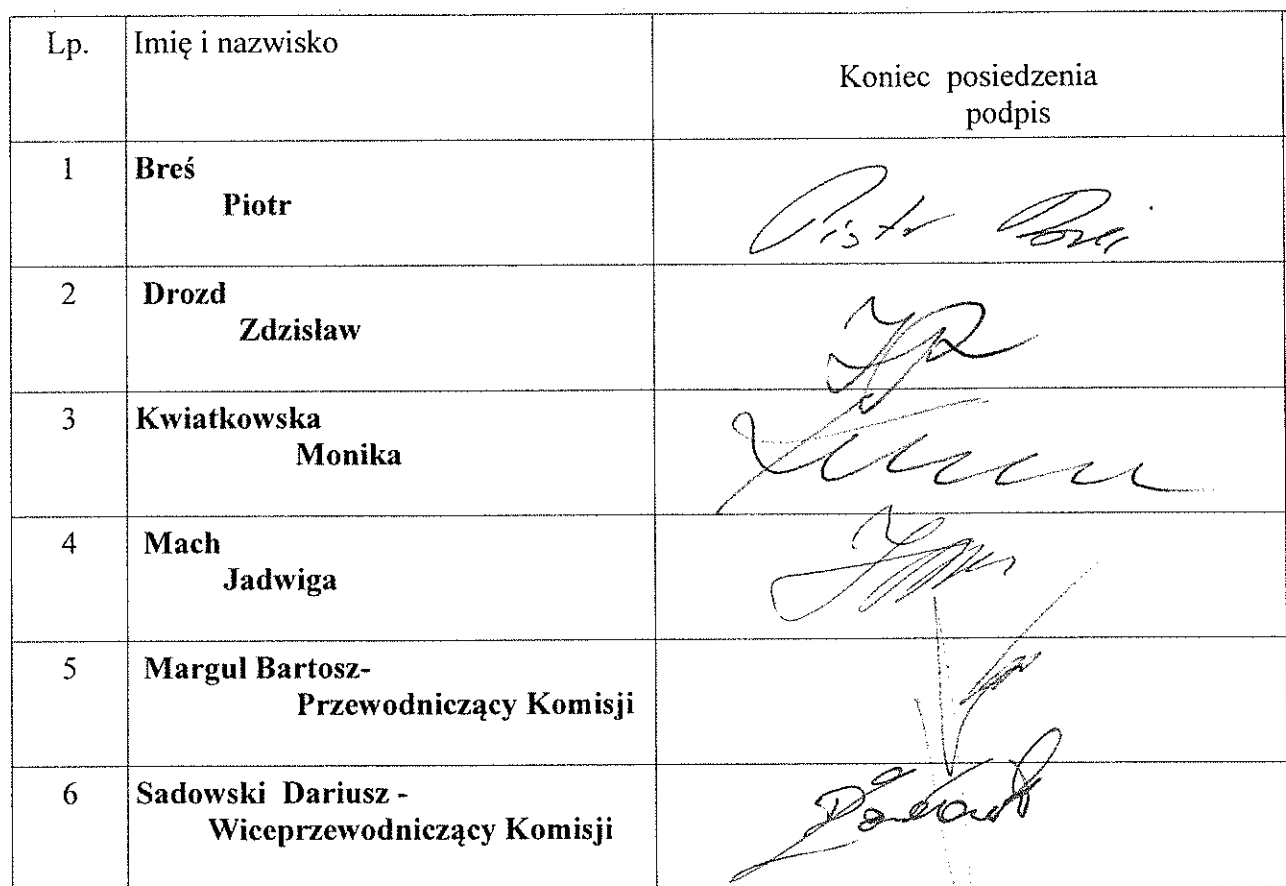 Lp. Imię i nazwisko
Koniec posiedzenia
podpis
1 Breś
Piotr
Piotr Breś
2 Drozd
Zdzisław
3 Kwiatkowska
Monika
4 Mach
Jadwiga
5 Margul Bartosz-
Przewodniczący Komisji
6 Sadowski Dariusz -
Wiceprzewodniczący Komisji